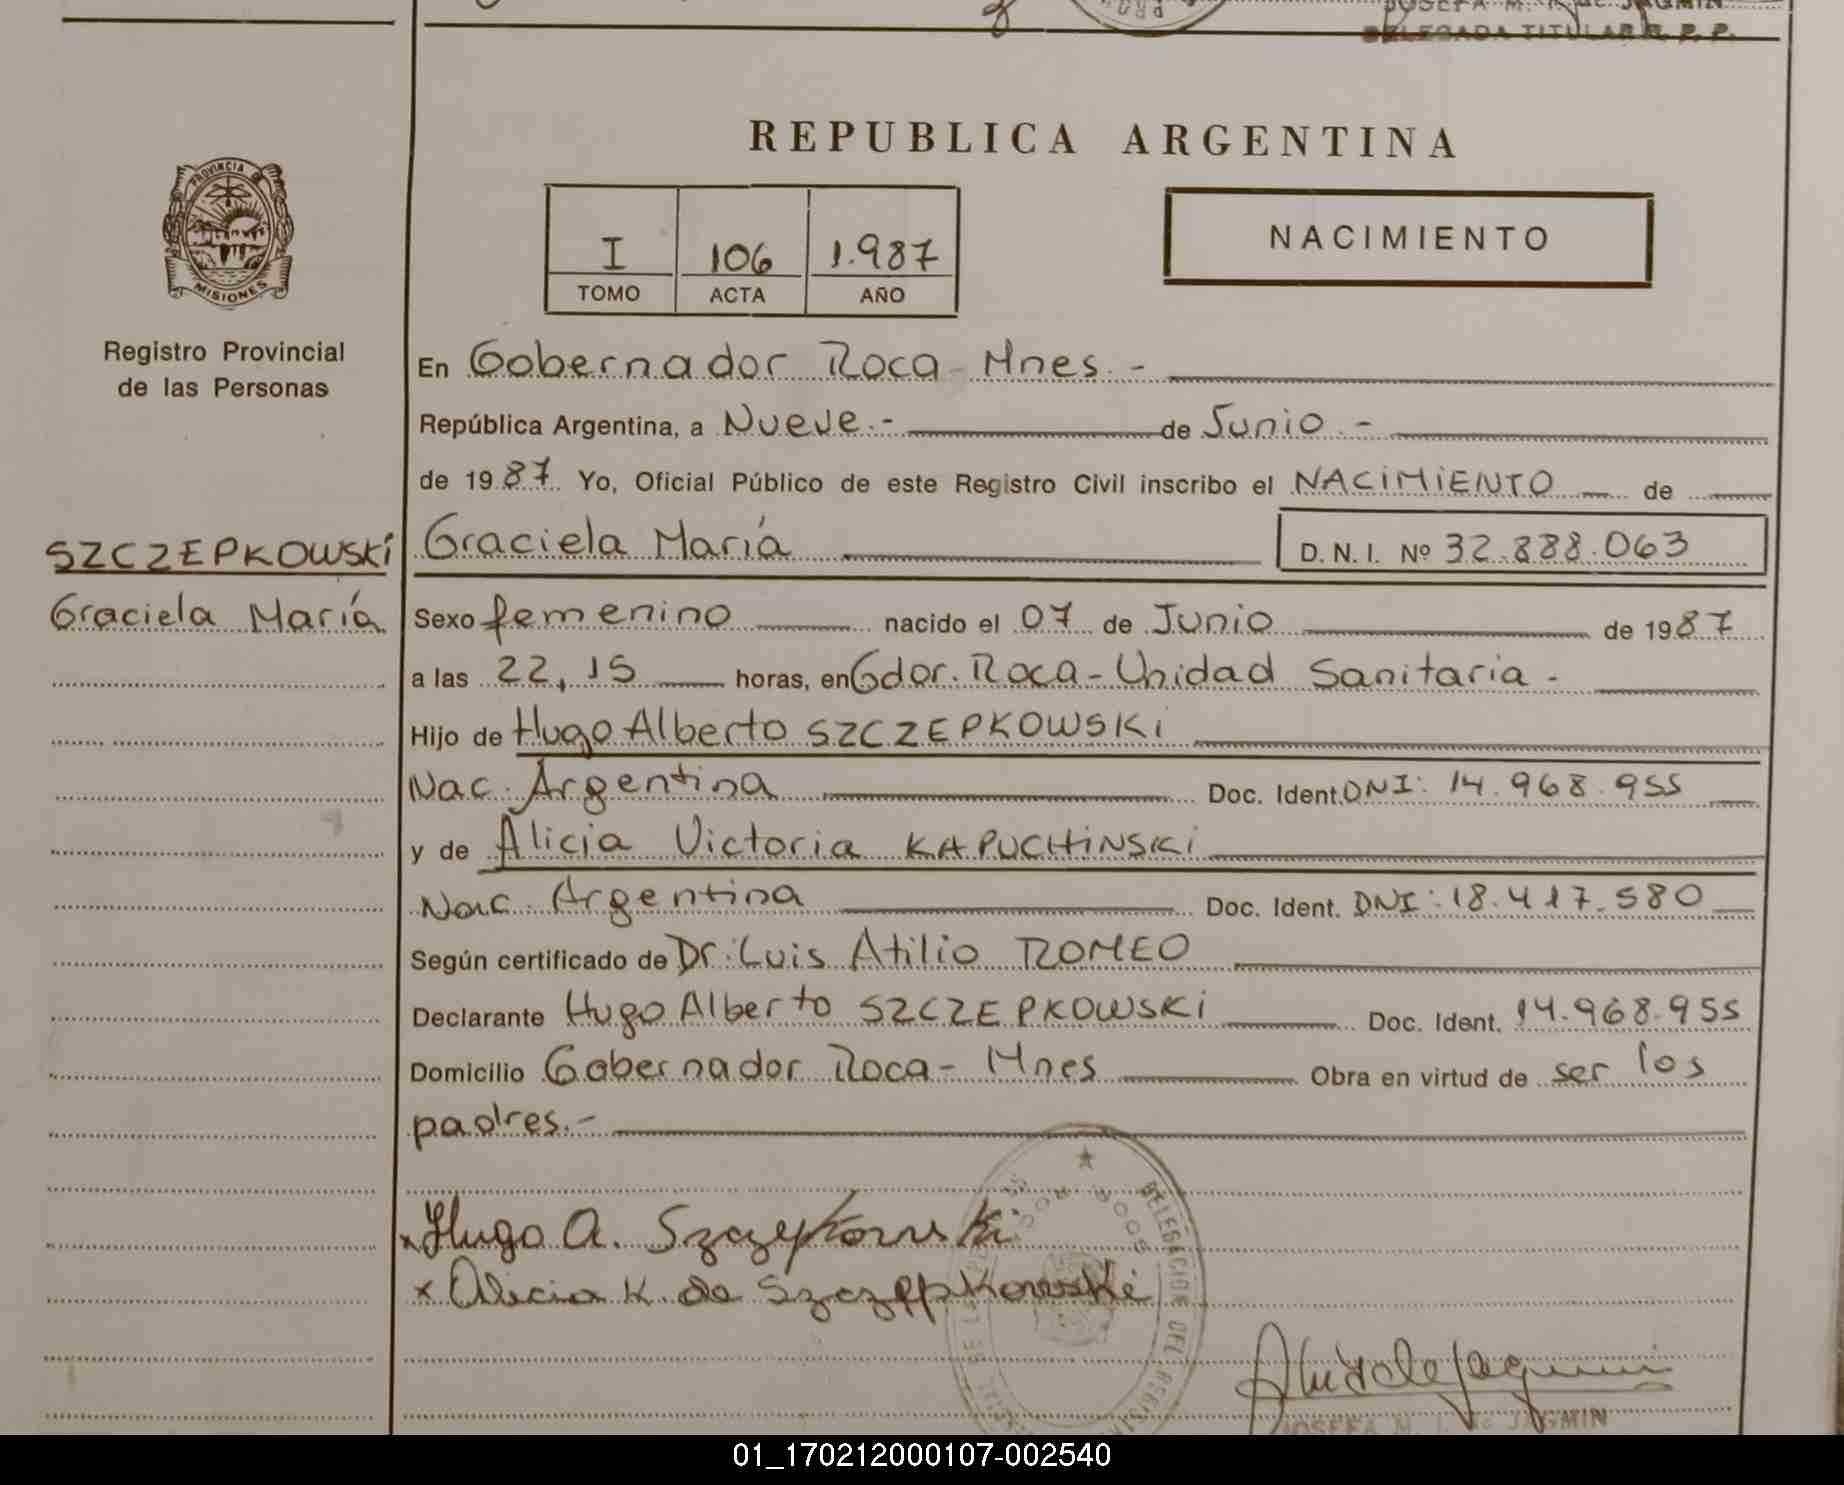 JOSEFA M. JAGMIN
DELEGADA TITULAR R. P. P.
REPUBLICA ARGENTINA
PROVINCIA
MISIONES
I 106 1.987
TOMO ACTA AÑO
NACIMIENTO
Registro Provincial
de las Personas
En Gobernador Roca - Mnes. -
República Argentina, a Nueve.- de Junio.-
de 1987 Yo, Oficial Público de este Registro Civil inscribo el NACIMIENTO de
SZCZEPKOWSKI
Graciela María
Graciela María D. N. I. Nº 32.888.063
Sexo femenino nacido el 07 de Junio de 1987
a las 22,15 horas, en Gdor. Roca - Unidad Sanitaria -
Hijo de Hugo Alberto SZCZEPKOWSKI
Nac. Argentina Doc. Ident. DNI: 14.968.955
y de Alicia Victoria KAPUCHINSKI
Nac. Argentina Doc. Ident. DNI: 18.417.580
Según certificado de Dr. Luis Atilio ROMEO
Declarante Hugo Alberto SZCZEPKOWSKI Doc. Ident. 14.968.955
Domicilio Gobernador Roca - Mnes Obra en virtud de ser los
padres.-
x Hugo A. Szczepkowski
x Alicia K. de Szczeppkowski
DELEGACION DEL REGISTRO
JOSEFA M. JAGMIN
01_170212000107-002540